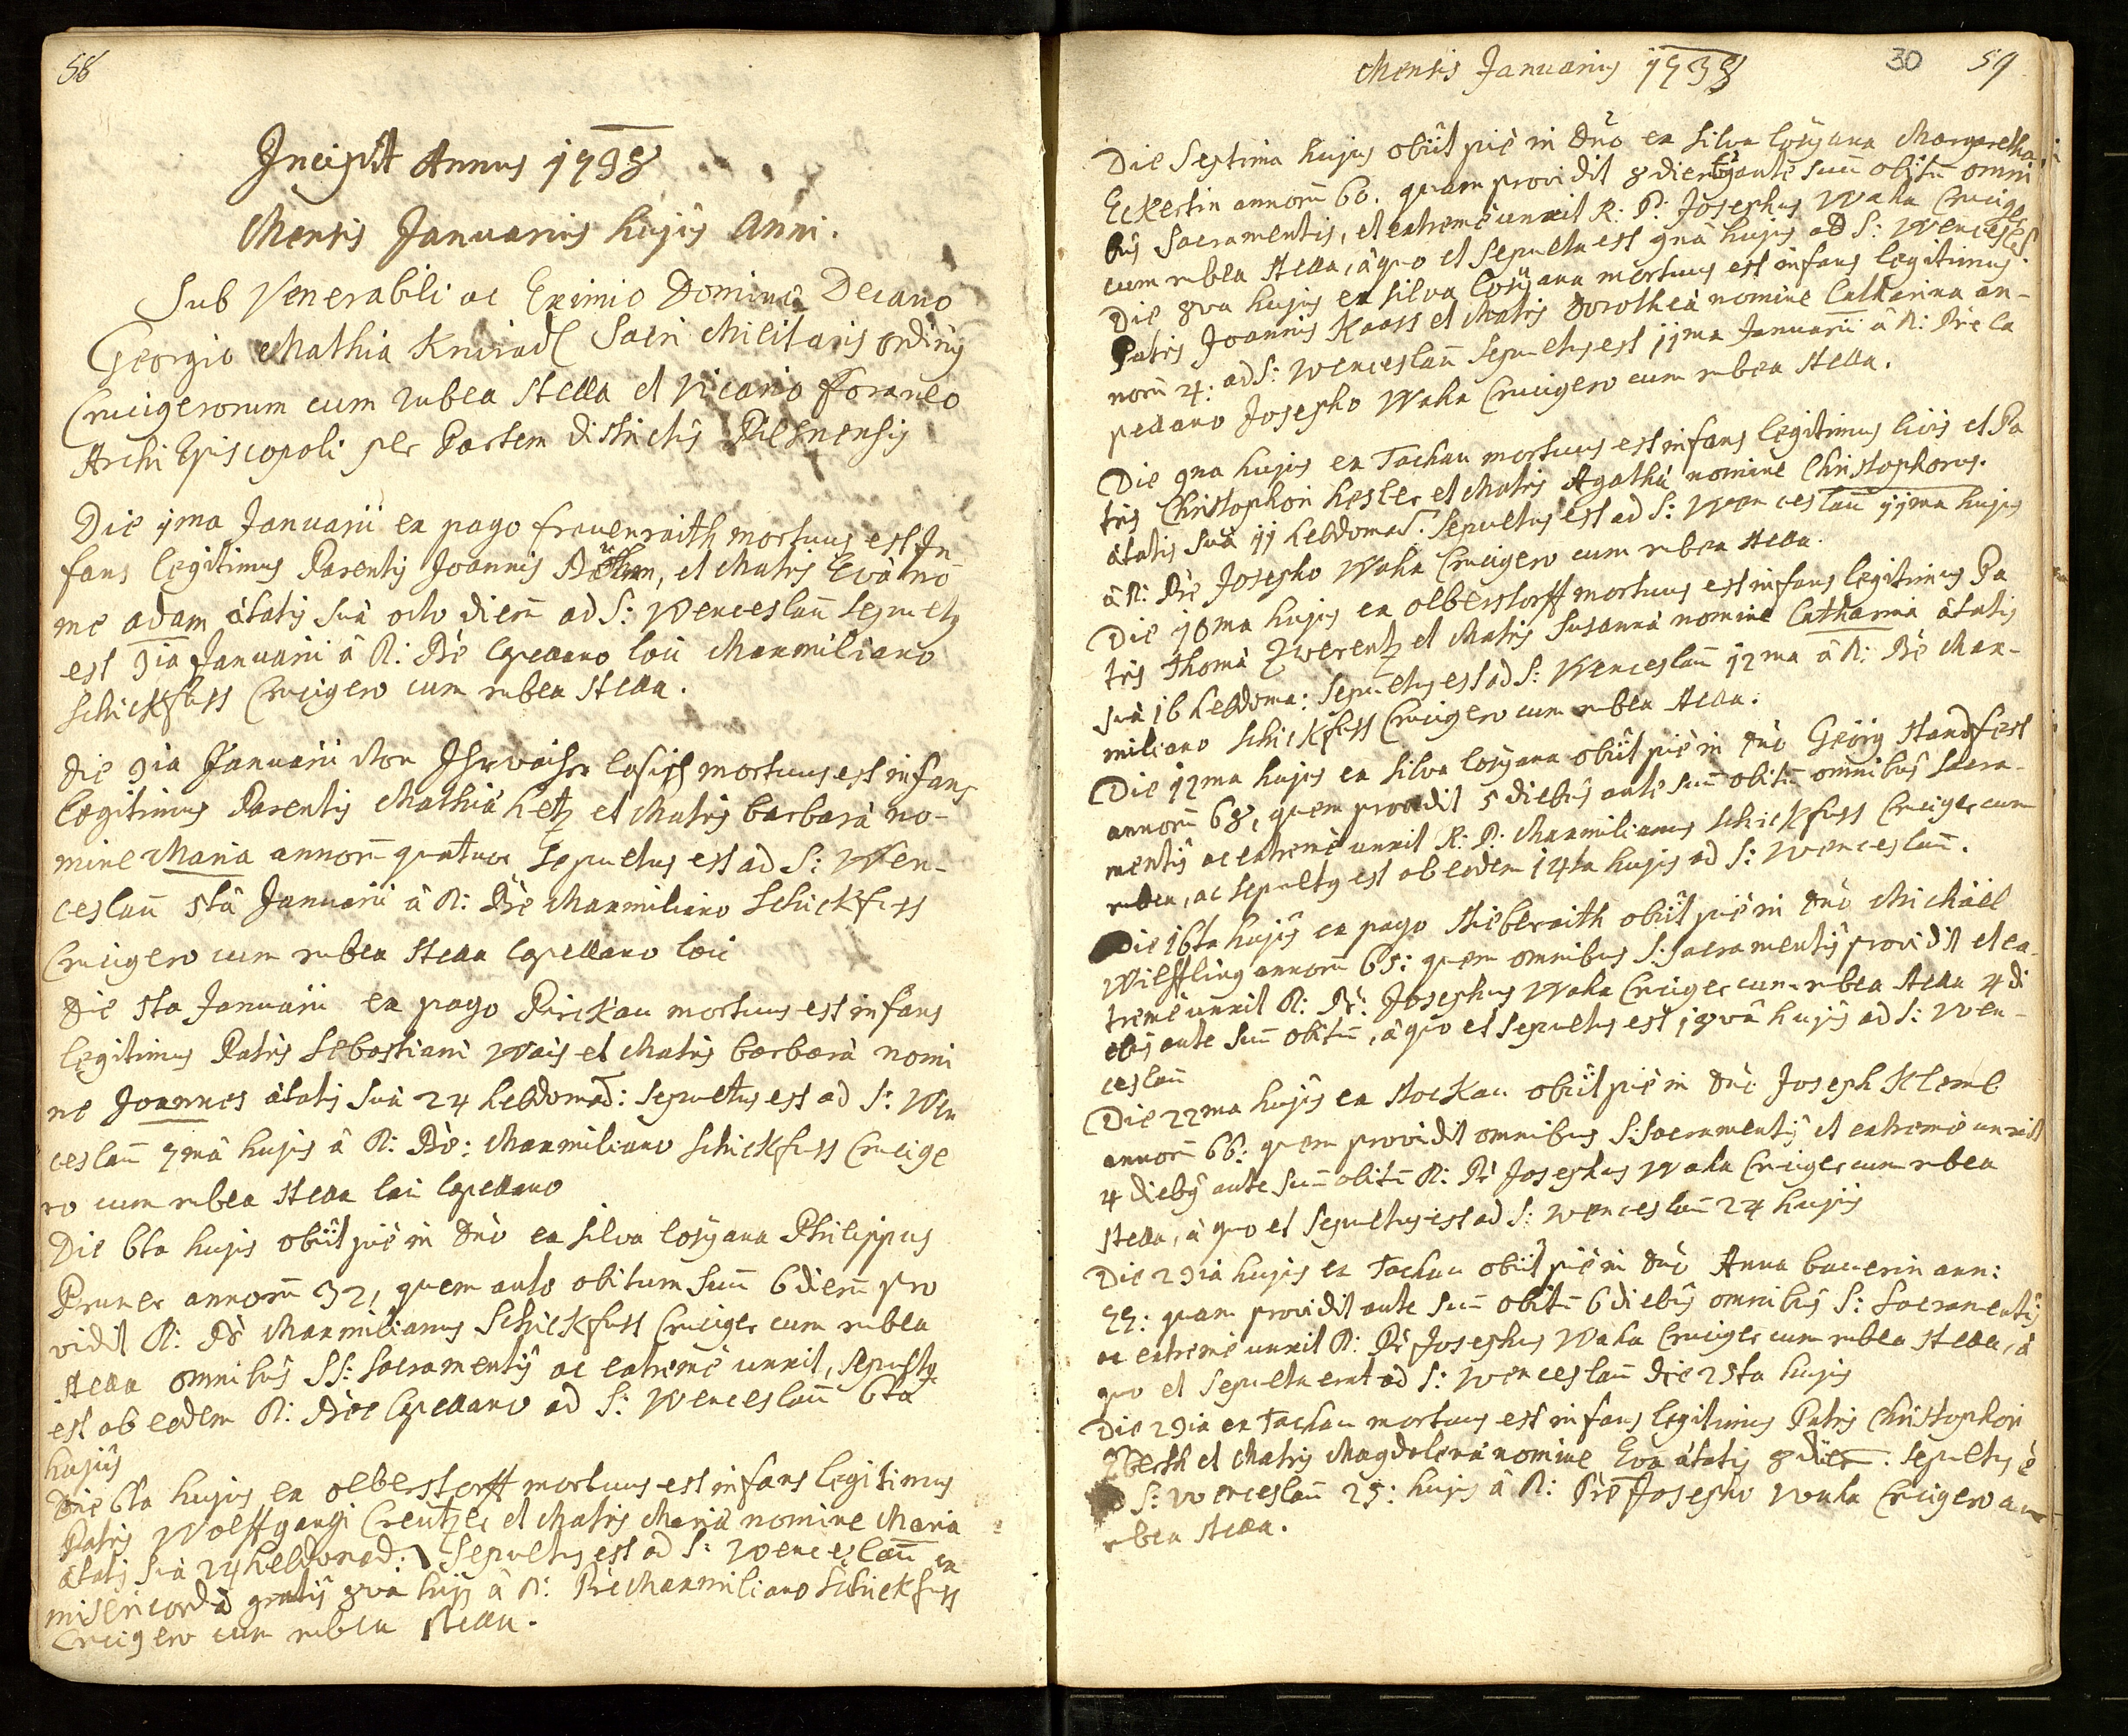 58
Incipit Annus 1738
Mensis Januarius hujus Anni.
Sub Venerabili ac Eximio Domino Decano
Georgio Mathia Sacri Militaris ordinis
Crucigerorum cum rubea stella et Vicario foraneo
Archi Episcopali per Partem districtus Pilsnensis
Die 1ma Januarii ex pago frauenraith mortuus est In-
fans legitimus Parentis Joannis et Matris Evà no-
me adam ætatis suà octo dierum ad S: Wenceslaum sepultus
est 3ia Januarii à R: Pre Capellano loci Maxmiliano
Schickfuss Crucigero cum rubea stella.
Die 3ia Januarii losich mortuus est infans
legitimus Parentis Mathià hetz et Matris barbarà no-
mine Maria annorum quatuor sepultus est ad S: Wen-
ceslaum 5tà Januarii à R: Pre Maxmiliano Schickfuss
Crucigero cum rubea stella Capellano loci
Die 5ta Januarii ex pago Pirckau mortuus est infans
legitimus Patris Sebastiani Wais et Matris barbarà nomi
ne Joannes ætatis suà 24 hebdomad: sepultus est ad S: Wen
ceslaum 7mà hujus à R: Pre: Maxmiliano Schickfuss Crucige
ro cum rubea stella loci Capellano
Die 6ta hujus obiit piè in dno ex silva losÿana Philippus
Pruner annorum 32, quem ante obitum suum 6 dierum pro
vidit R: Pr Maxmilianus Schickfuss Cruciger cum rubea
stella omnibus SS: Sacramentis ac extremè unxit, sepultus
est ab eodem R: Pre Capellano ad S: Wenceslaum 6ta
hujus
Die 6ta hujus ex olberstorff mortuus est infans legitimus
Patris Wolffgangi Creutzer et Matris Marià nomine Maria
ætatis suà 24 hebdomad: sepultus est ad S: Wenceslaum ex
misericordià gratis 8va hujus à R: Pre Maxmiliano Schickfuss
Crucigero cum rubea stella.
Mensis Januarius 1738
30
59
Die Septima hujus obiit piè in dno ex silva losÿana Margaretha
Eckertin annorum 60. quam providit 8 diebus ante suum obitum omni
bus Sacramentis, et extremè unxit R: P: Josephus Waha Crucige
cum rubea stella, à quo et sepulta est 9nà hujus ad S: Wencesl.
Die 8va hujus ex silva losÿana mortuus est infans legitimus
Patris Joannis Kaass et Matris Dorotheà nomine Catharina an-
norum 4: ad S: Wenceslaum sepultus est 11ma Januarii à R: Pre Ca
pellano Josepho Waha Crucigero cum rubea stella.
Die 9na hujus ex Tachau mortuus est infans legitimus et Pa
tris Christophori hesler et Matris Agathà nomine Christophorus.
ætatis suà 11 hebdomad: sepultus est ad S: Wenceslaum 11ma hujus
à R: Pre Josepho Waha Crucigero cum rubea stella.
Die 10ma hujus ex olberstorff mortuus est infans legitimus Pa
tris Thomà Zwerentz et Matris Susannà nomine Catharina ætatis
suà 16 hebdoma: sepultus est ad S: Wenceslaum 12ma à R: Pre Max-
miliano Schickfuss Crucigero cum rubea stella.
Die 12ma hujus ex silva losÿana obiit piè in dno Geörg Standfest
annorum 68, quem providit 5 diebus ante suum obitum omnibus Sacra-
mentis ac extremè unxit R: P: Maxmilianus Schickfuss Cruciger cum
rubea, ac sepultus est ab eodem 14ta hujus ad S: Wenceslaum.
Die 16ta hujus ex pago stieberaith obiit piè in dno Michäel
Wilffling annorum 65: quem omnibus S: Sacramentis providit et ex-
tremè unxit R: Pr: Josephus Waha Cruciger cum rubea stella 4 di
ebus ante suum obitum, à quo et sepultus est 18và hujus ad S: Wen-
ceslaum
Die 22ma hujus ex stockau obiit piè in dno Joseph Kleml
annorum 66: quem providit omnibus S: Sacramentis et extremè unxit
4 diebus ante suum obitum R: Pr Josephus Waha Cruciger cum rubea
stella, à quo et sepultus est ad S: Wenceslaum 24 hujus
Die 23ia hujus ex Tachau obiit piè in dno Anna bauerin ann:
77: quam providit ante suum obitum 6 diebus omnibus S: Sacramentis
ac extremè unxit R: Pr Josephus Waha Cruciger cum rubea stella, à
quo et sepulta erat ad S: Wenceslaum die 25ta hujus
Die 23ia ex Tachau mortuus est infans legitimus Patris Christophori
et Matris Magdalenà nomine Eva ætatis 8 dier: sepultus è
ad S: Wenceslaum 25: hujus à R: Pre Josepho Waha Crucigero cum
rubea stella.